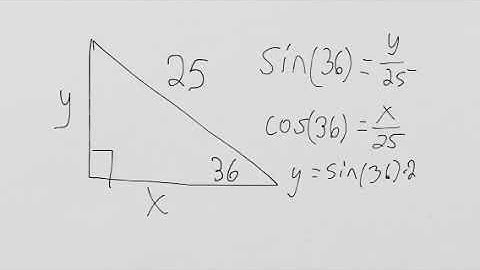 25
y
36
x
sin(36) = y/25
cos(36) = x/25
y = sin(36)·2